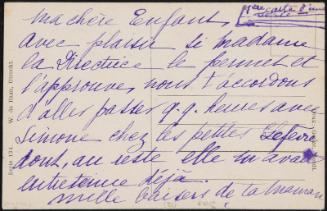 ma chère Enfant,
avec plaisir si madame
la Directrice le permet et
l'approuve, nous t'accordons
d'aller passer q.q. heures avec
Simone chez les petites Lefevre
dont, au reste elle m'avait
entretenue déjà.
mille baisers de ta maman